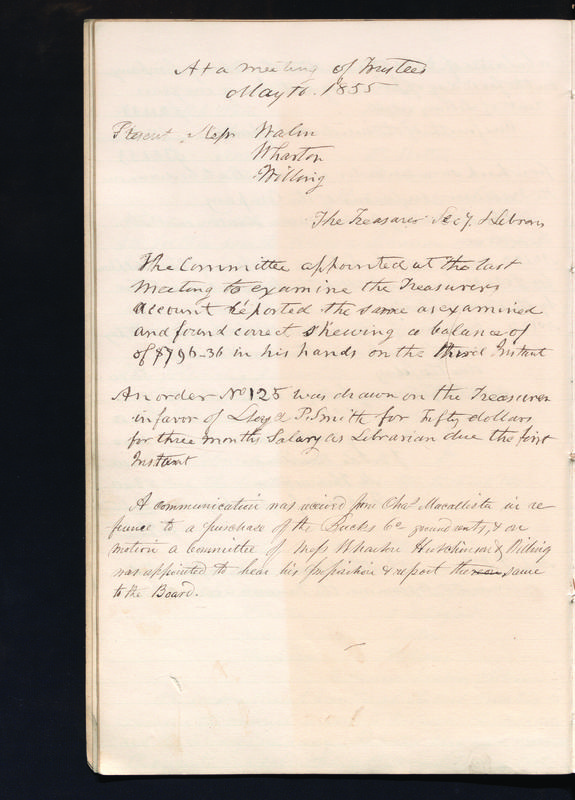 At a meeting of Trustees
May 10. 1855
Present Messrs Waln
Wharton
Willing
The Treasurer Secy. & Librarn
The Committee appointed at the last
meeting to examine the Treasurers
account reported the same as examined
and found correct shewing a balance of
of $796-36 in his hands on the third Instant
An order No 125 was drawn on the Treasurer
in favor of Lloyd P. Smith for Fifty dollars
for three months Salary as Librarian due the first
Instant
A communication was received from Chas. Macallister in re
ference to a purchase of the Bucks Co. ground rents, & on
motion a committee of Messrs Wharton Hutchinson & Willing
was appointed to hear his proposition & report the same
to the Board.